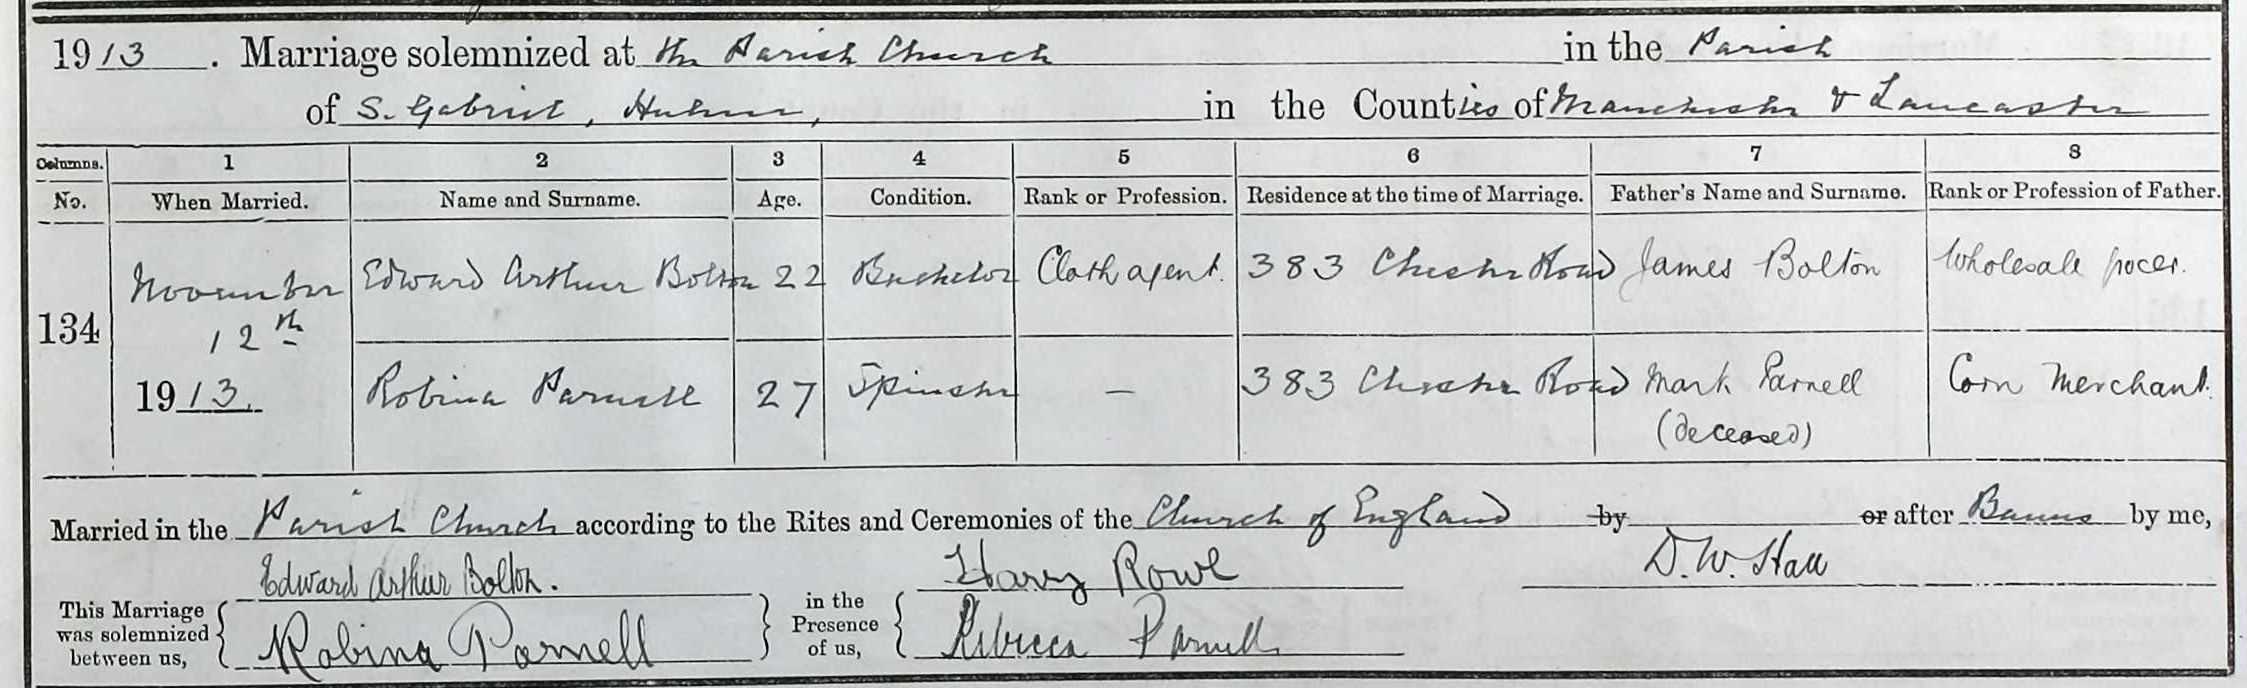 1913. Marriage solemnized at the Parish Church in the Parish
of S. Gabriel, Hulme, in the Counties of Manchester & Lancaster
Columns. 1 2 3 4 5 6 7 8
No. When Married. Name and Surname. Age. Condition. Rank or Profession. Residence at the time of Marriage. Father's Name and Surname. Rank or Profession of Father.
134 November 12th 1913. Edward Arthur Bolton 22 Bachelor Cloth agent. 383 Chester Road James Bolton Wholesale Grocer.
Robina Parnell 27 Spinster — 383 Chester Road Mark Parnell (deceased) Corn Merchant.
Married in the Parish Church according to the Rites and Ceremonies of the Church of England by or after Banns by me,
Edward Arthur Bolton. Harry Rowe D. W. Hall
This Marriage was solemnized between us, in the Presence of us,
Robina Parnell Rebecca Parnell